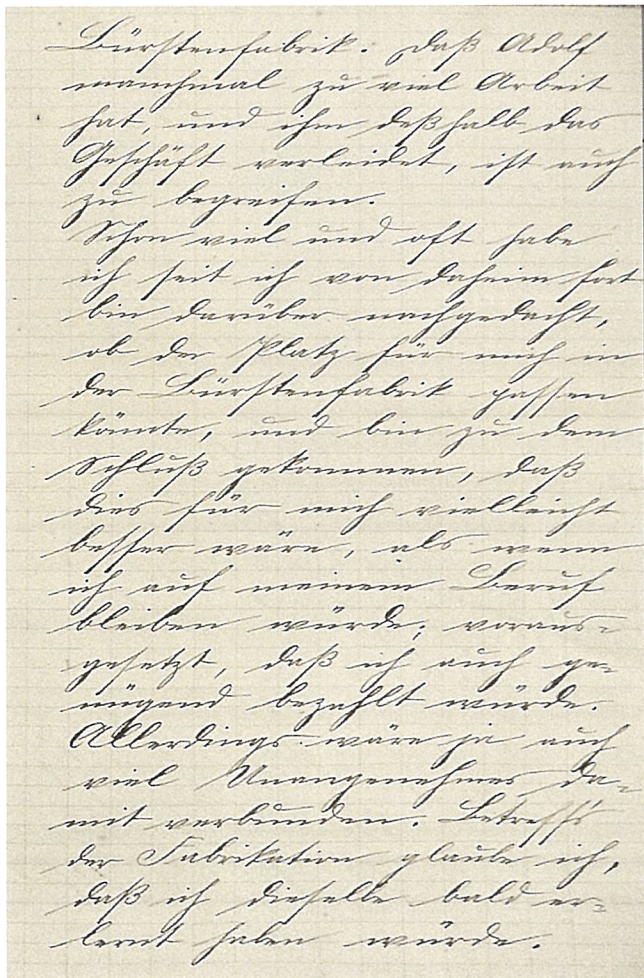 Bürstenfabrik. Daß Adolf
manchmal zu viel Arbeit
hat, und ihm deßhalb das
Geschäft verleidet, ist auch
zu begreifen.
Schon viel und oft habe
ich seit ich von daheim fort
bin darüber nachgedacht,
ob der Platz für mich in
der Bürstenfabrik passen
könnte, und bin zu dem
Schluß gekommen, daß
dies für mich vielleicht
besser wäre, als wenn
ich auf meinem Beruf
bleiben würde; voraus-
gesetzt, daß ich auch ge-
nügend bezahlt würde.
Allerdings wäre ja auch
viel Unangenehmes da-
mit verbunden. Betreffs
der Fabrikation glaube ich,
daß ich dieselbe bald er-
lernt haben würde.